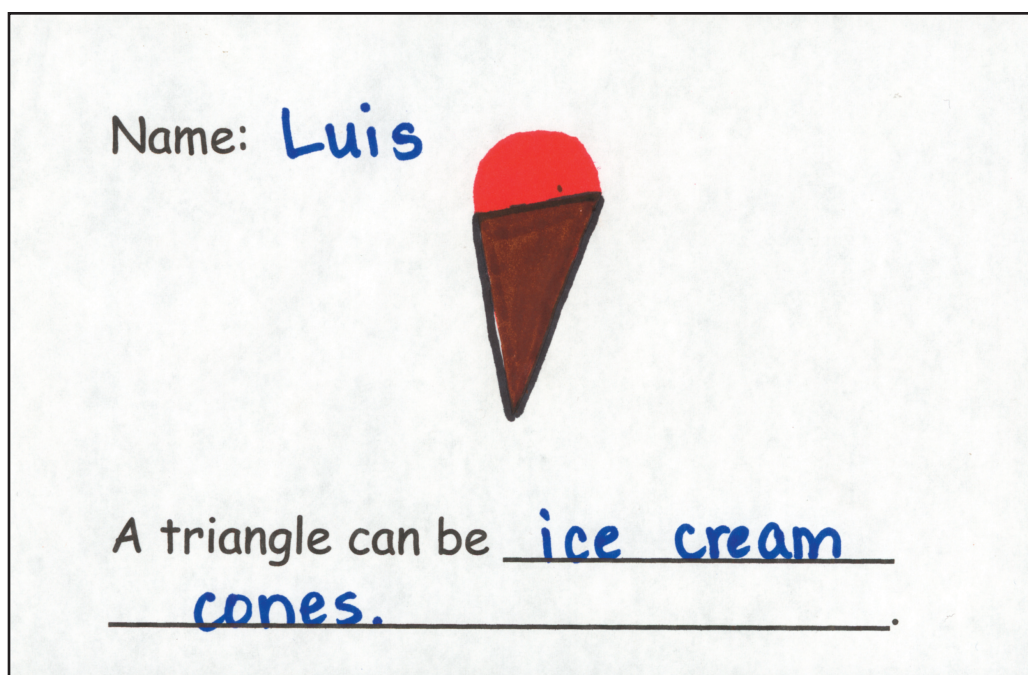 Name: Luis
A triangle can be ice cream
cones. .